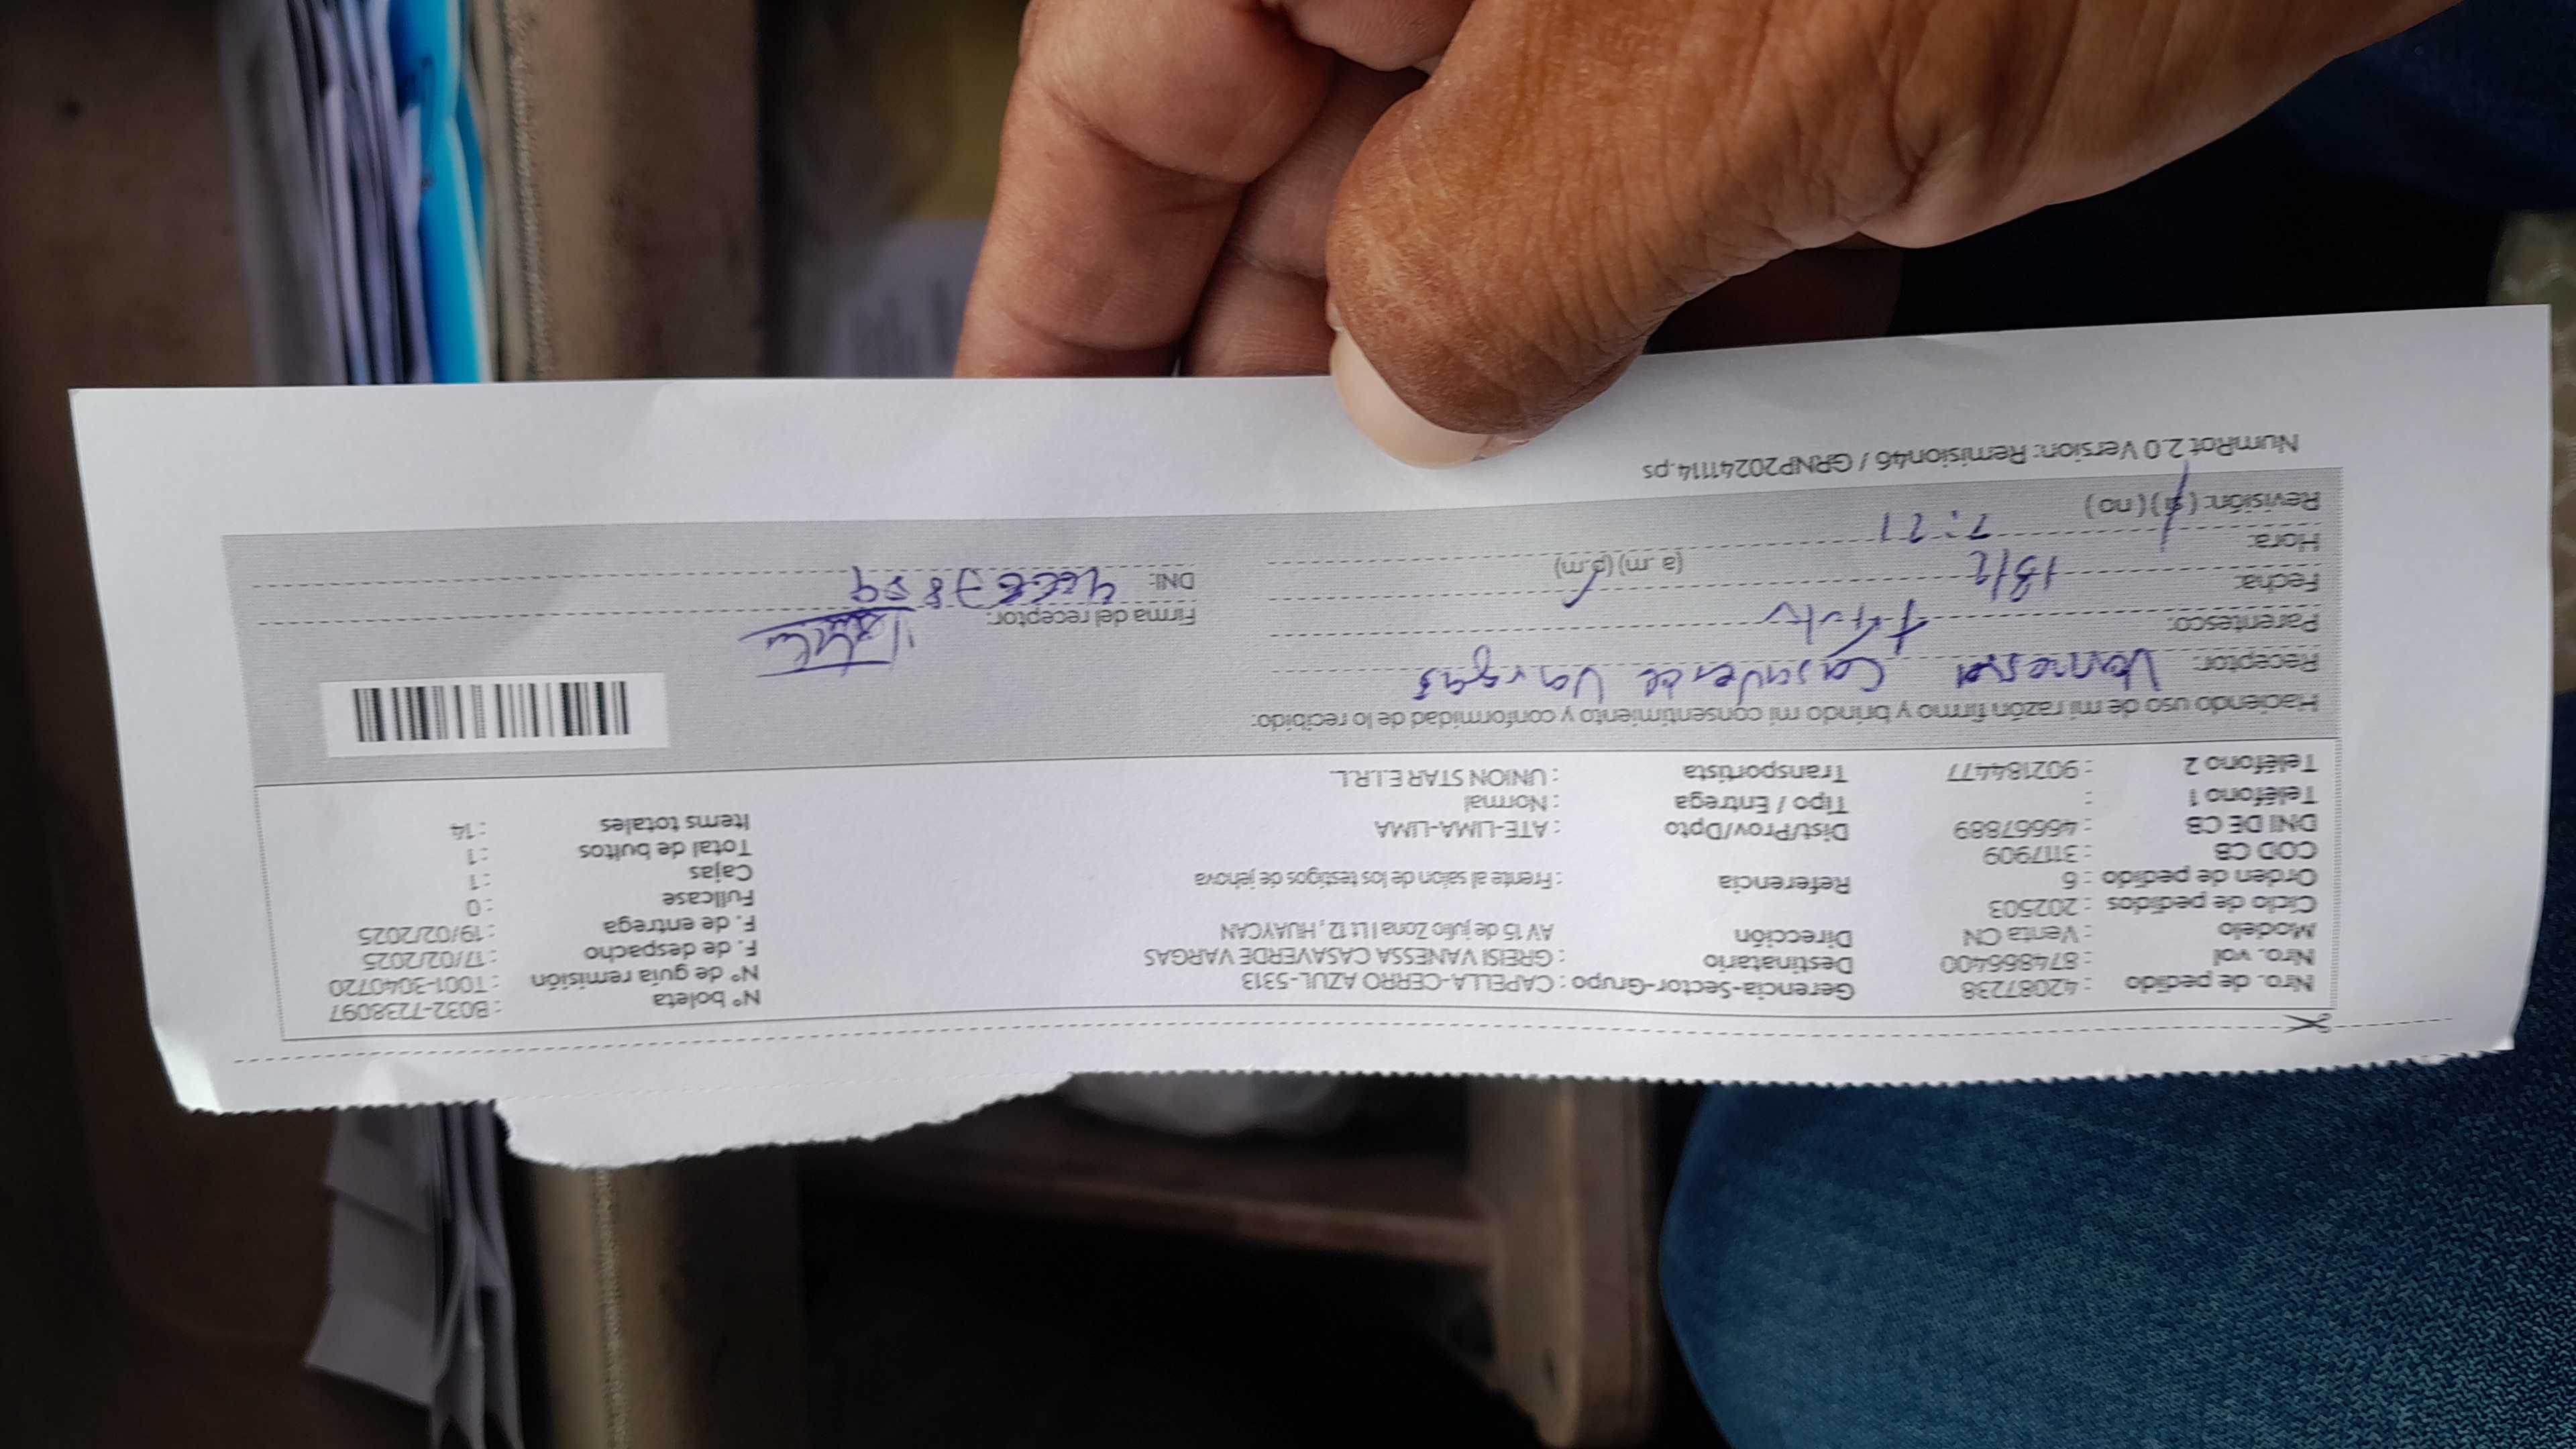 Nro. de pedido : 42087238 Gerencia-Sector-Grupo : CAPELLA-CERRO AZUL-5313 N° boleta : B032-7238097
Nro. vol : 874866400 Destinatario : GREISI VANESSA CASAVERDE VARGAS N° de guía remisión : T001-3040720
Modelo : Venta CN Dirección AV 15 de julio Zona I Lt 12, HUAYCAN F. de despacho : 17/02/2025
Ciclo de pedidos : 202503 F. de entrega : 19/02/2025
Orden de pedido : 6 Referencia : Frente al salon de los testigos de jehova Fullcase : 0
COD CB : 3117909 Cajas : 1
DNI DE CB : 46667889 Dist/Prov/Dpto : ATE-LIMA-LIMA Total de bultos : 1
Teléfono 1 : Tipo / Entrega : Normal Items totales : 14
Teléfono 2 : 902184477 Transportista : UNION STAR E.I.R.L.
Haciendo uso de mi razón firmo y brindo mi consentimiento y conformidad de lo recibido:
Receptor: Vanessa Casaverde Vargas
Parentesco: titular Firma del receptor:
Fecha: 18/2 DNI:
Hora: 7:21 (a .m) (p.m)
Revisión: ( si ) ( no )
NumRot 2.0 Version: Remision46 / GRNP20241114.ps